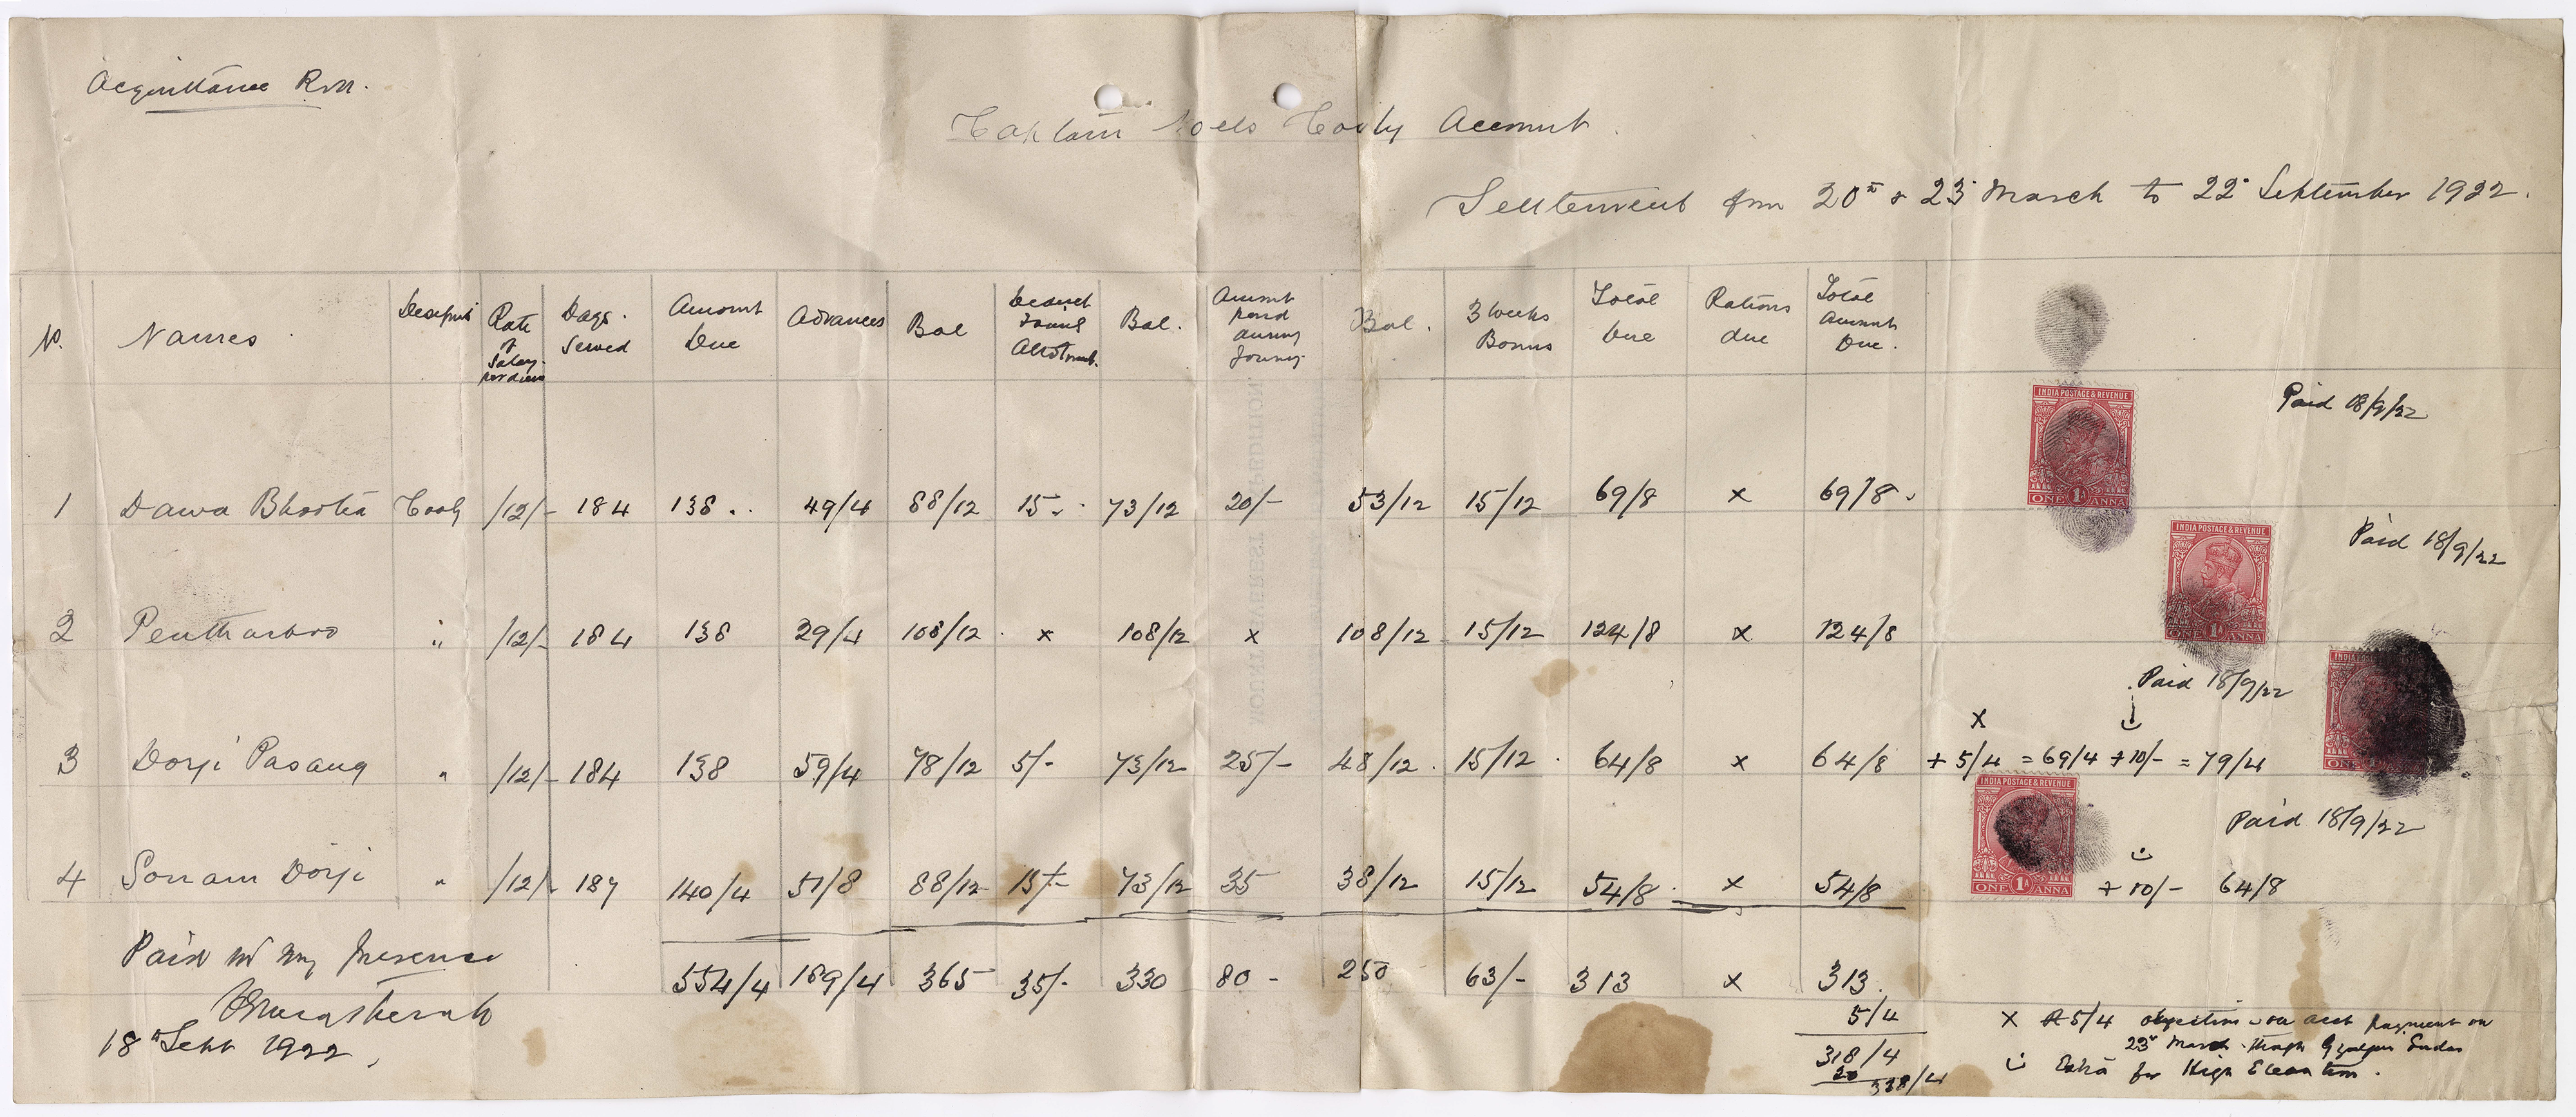 Acquittance Roll.
Captain Noels Cooly Account.
Settlement from 20th & 23d March to 22d September 1922.
No. Names Descript Rate of Salary per diem Days Served Amount Due Advances Bal Deduct Family Allotmt. Bal. Amount paid during Journey Bal. 3 weeks Bonus Total Due Rations due Total Amount Due.
Paid 18/9/22
1 Dawa Bhootia Cooly /12/- 184 138 .. 49/4 88/12 15 .. 73/12 20/- 53/12 15/12 69/8 x 69/8
INDIA POSTAGE & REVENUE
ONE 1A ANNA
Paid 18/9/22
2 " /12/- 184 138 29/4 108/12 x 108/12 x 108/12 15/12 124/8 x 124/8
INDIA POSTAGE & REVENUE
ONE 1A ANNA
Paid 18/9/22
x
3 Dorji Pasang " /12/- 184 138 59/4 78/12 5/- 73/12 25/- 48/12 15/12 64/8 x 64/8 + 5/4 = 69/4 + 10/- = 79/4
INDIA
ONE
INDIA POSTAGE & REVENUE
ONE 1A ANNA
Paid 18/9/22
4 Sonam Dorji " /12/- 187 140/4 51/8 88/12 15/- 73/12 35 38/12 15/12 54/8 x 54/8 + 10/- 64/8
554/4 189/4 365 35/- 330 80 - 250 63/- 313 x 313.
5/4
318/4
20
338/4
Paid in my presence
18th Sept 1922
x R 5/4 objection on acct payment on
23d March through Gyalzen
Extra for High Elevation.
MOUNT EVEREST EXPEDITION